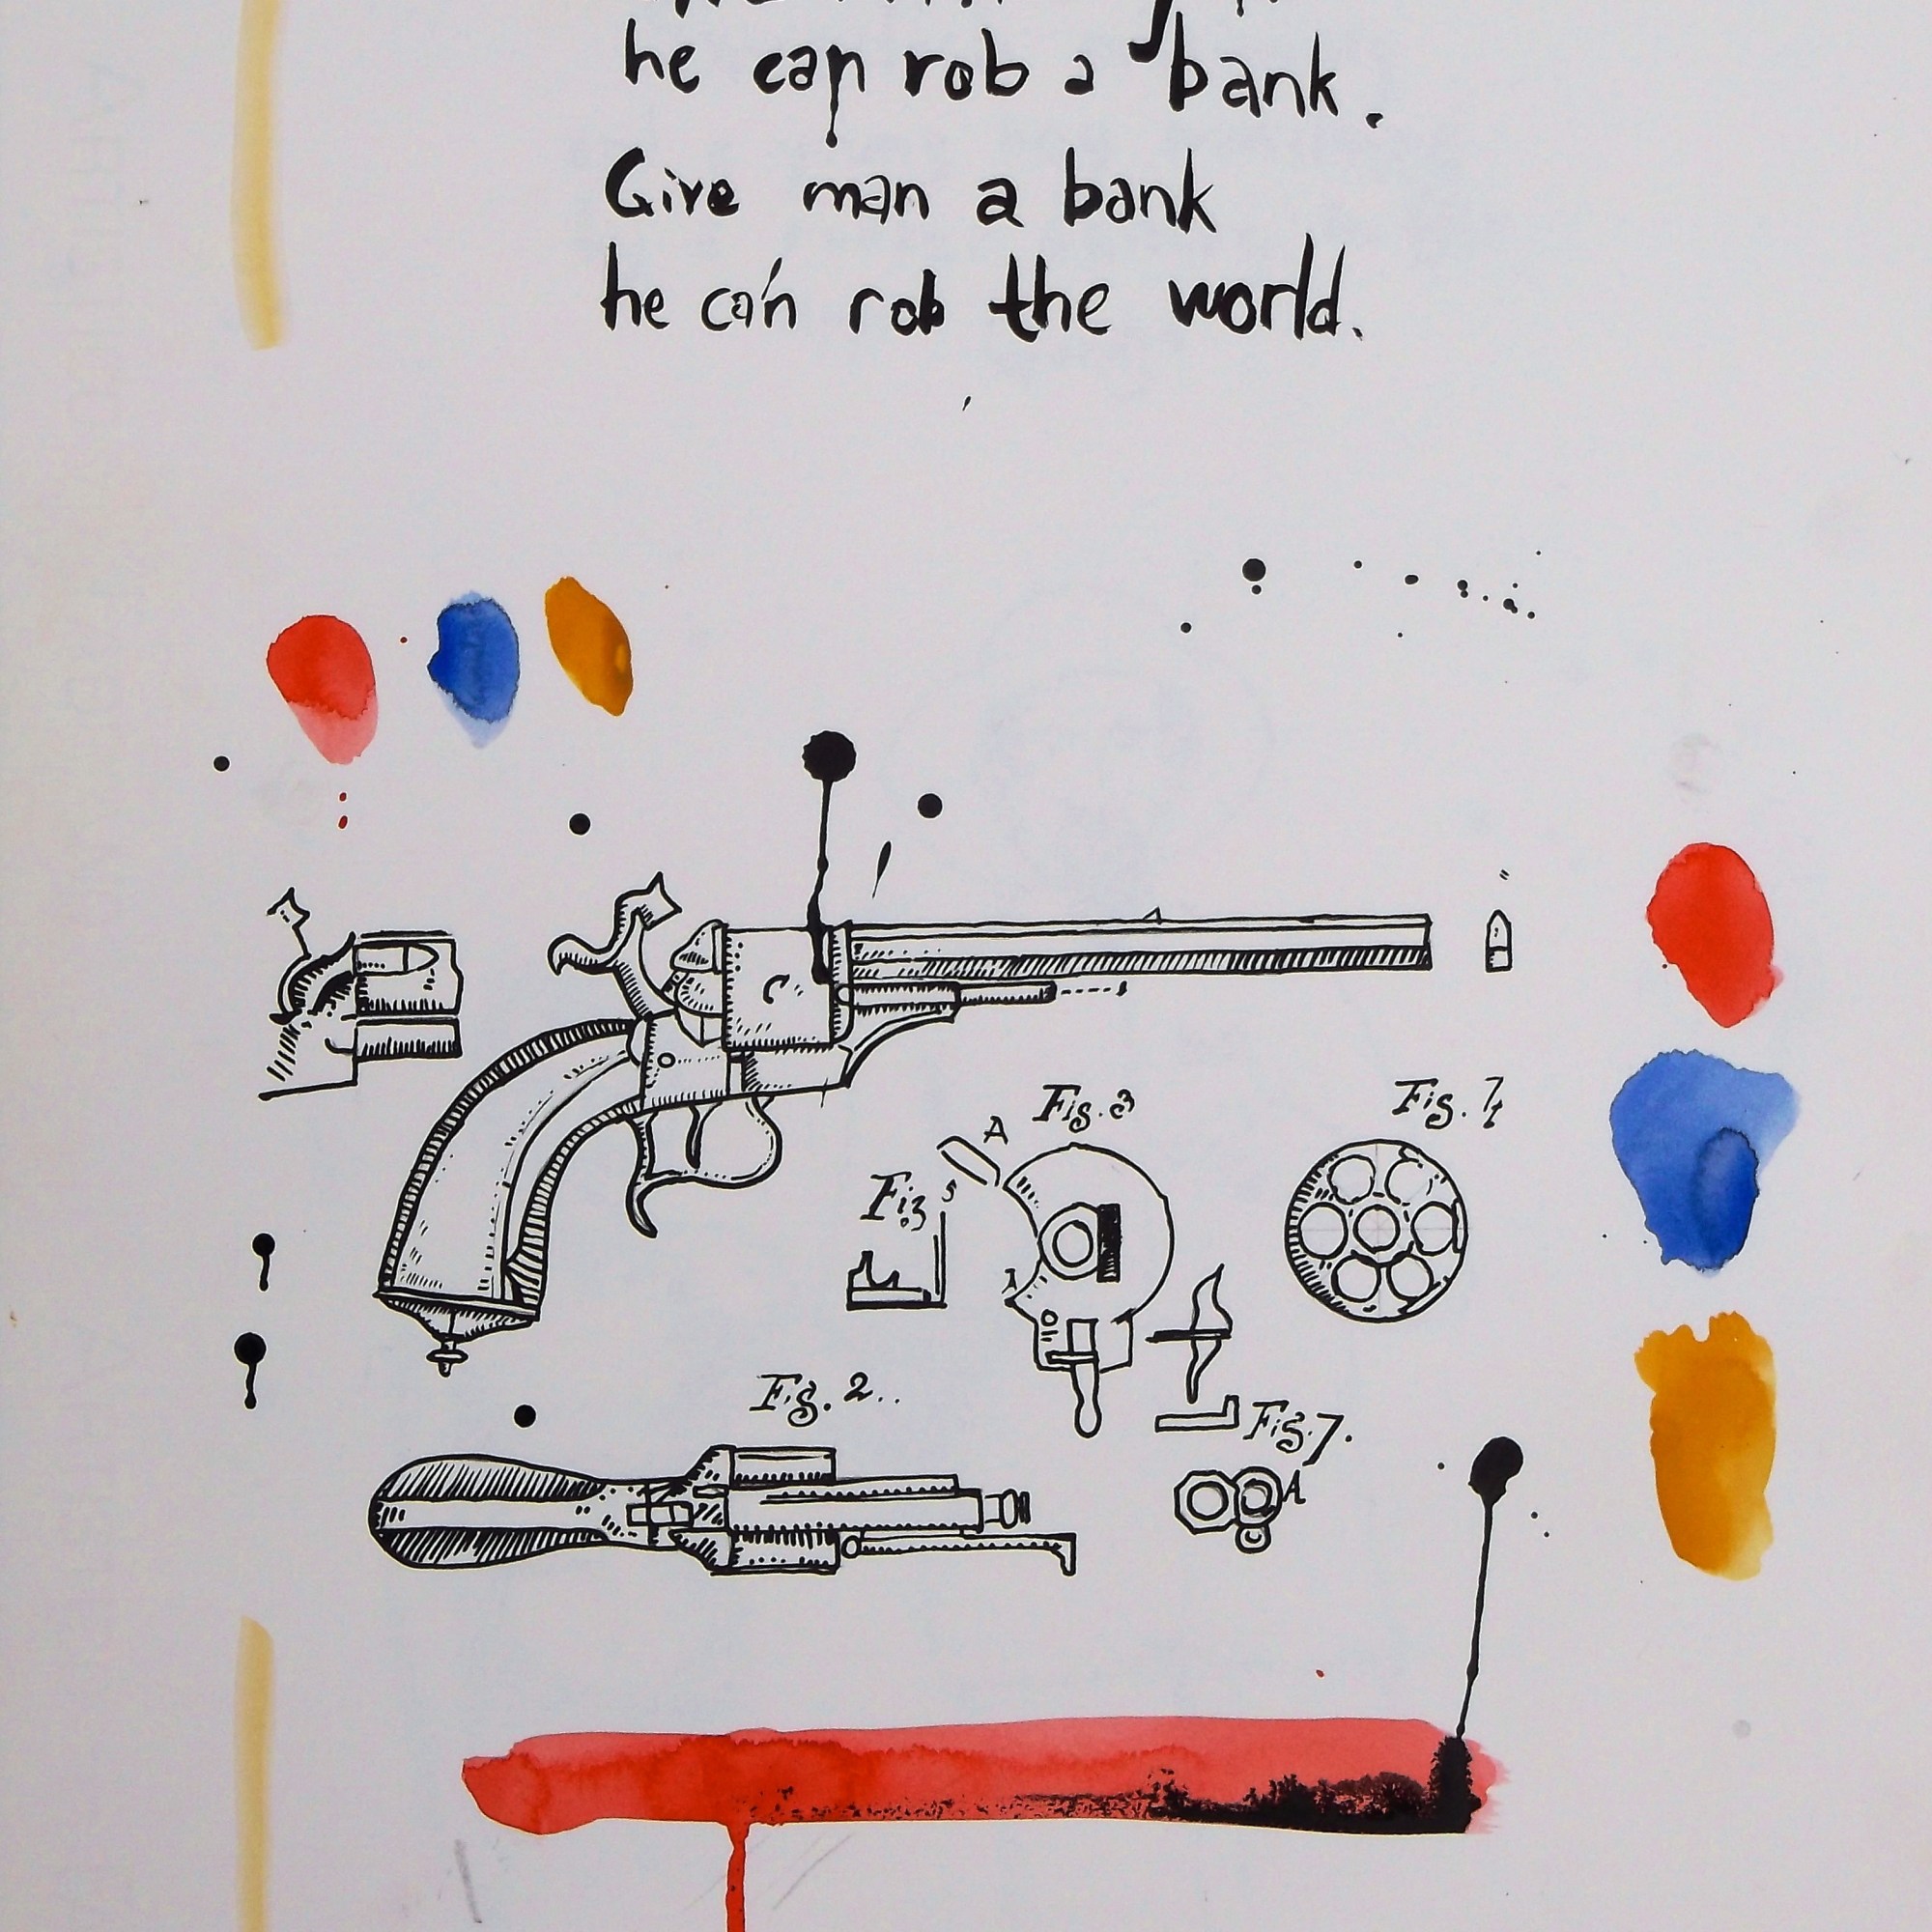 he can rob a bank.
Give man a bank
he can rob the world.
C
Fig. 3
A
Fig. 4
Fig 5
Fig. 2..
Fig. 7.
A